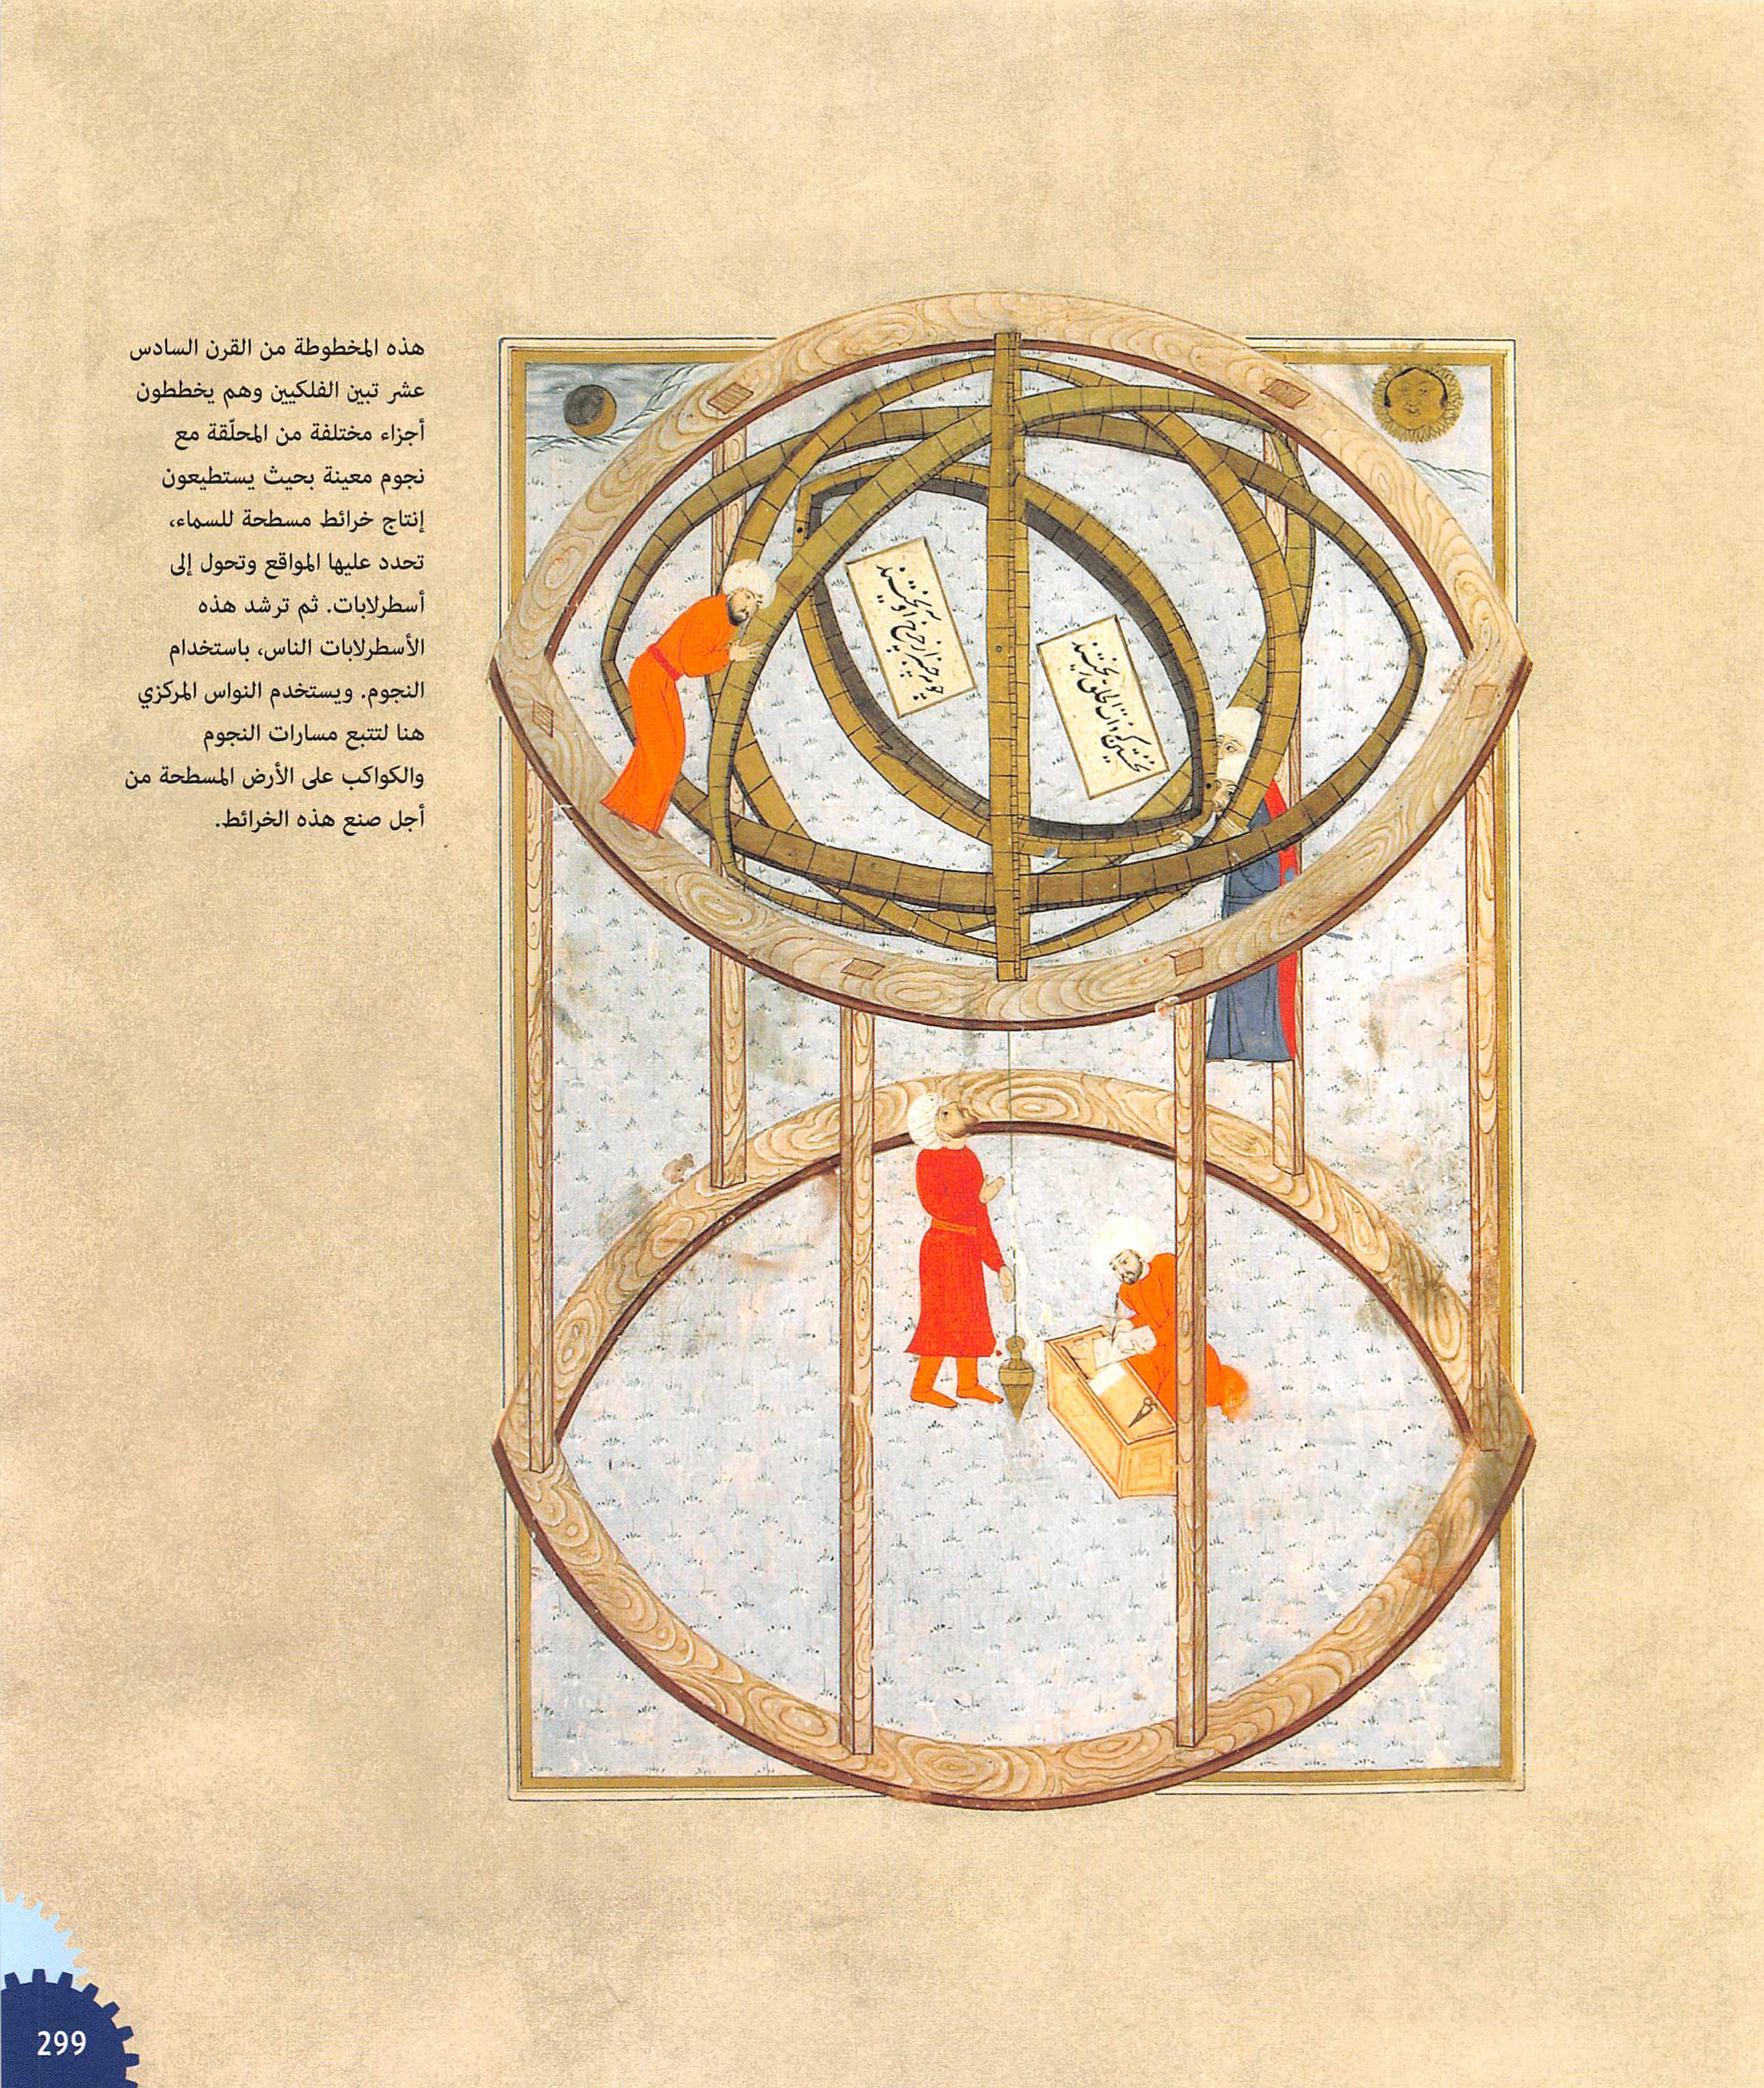 هذه المخطوطة من القرن السادس
عشر تبين الفلكيين وهم يخططون
أجزاء مختلفة من المحلّقة مع
نجوم معينة بحيث يستطيعون
إنتاج خرائط مسطحة للسماء،
تحدد عليها المواقع وتحول إلى
أسطرلابات. ثم ترشد هذه
الأسطرلابات الناس، باستخدام
النجوم. ويستخدم النواس المركزي
هنا لتتبع مسارات النجوم
والكواكب على الأرض المسطحة من
أجل صنع هذه الخرائط.
299